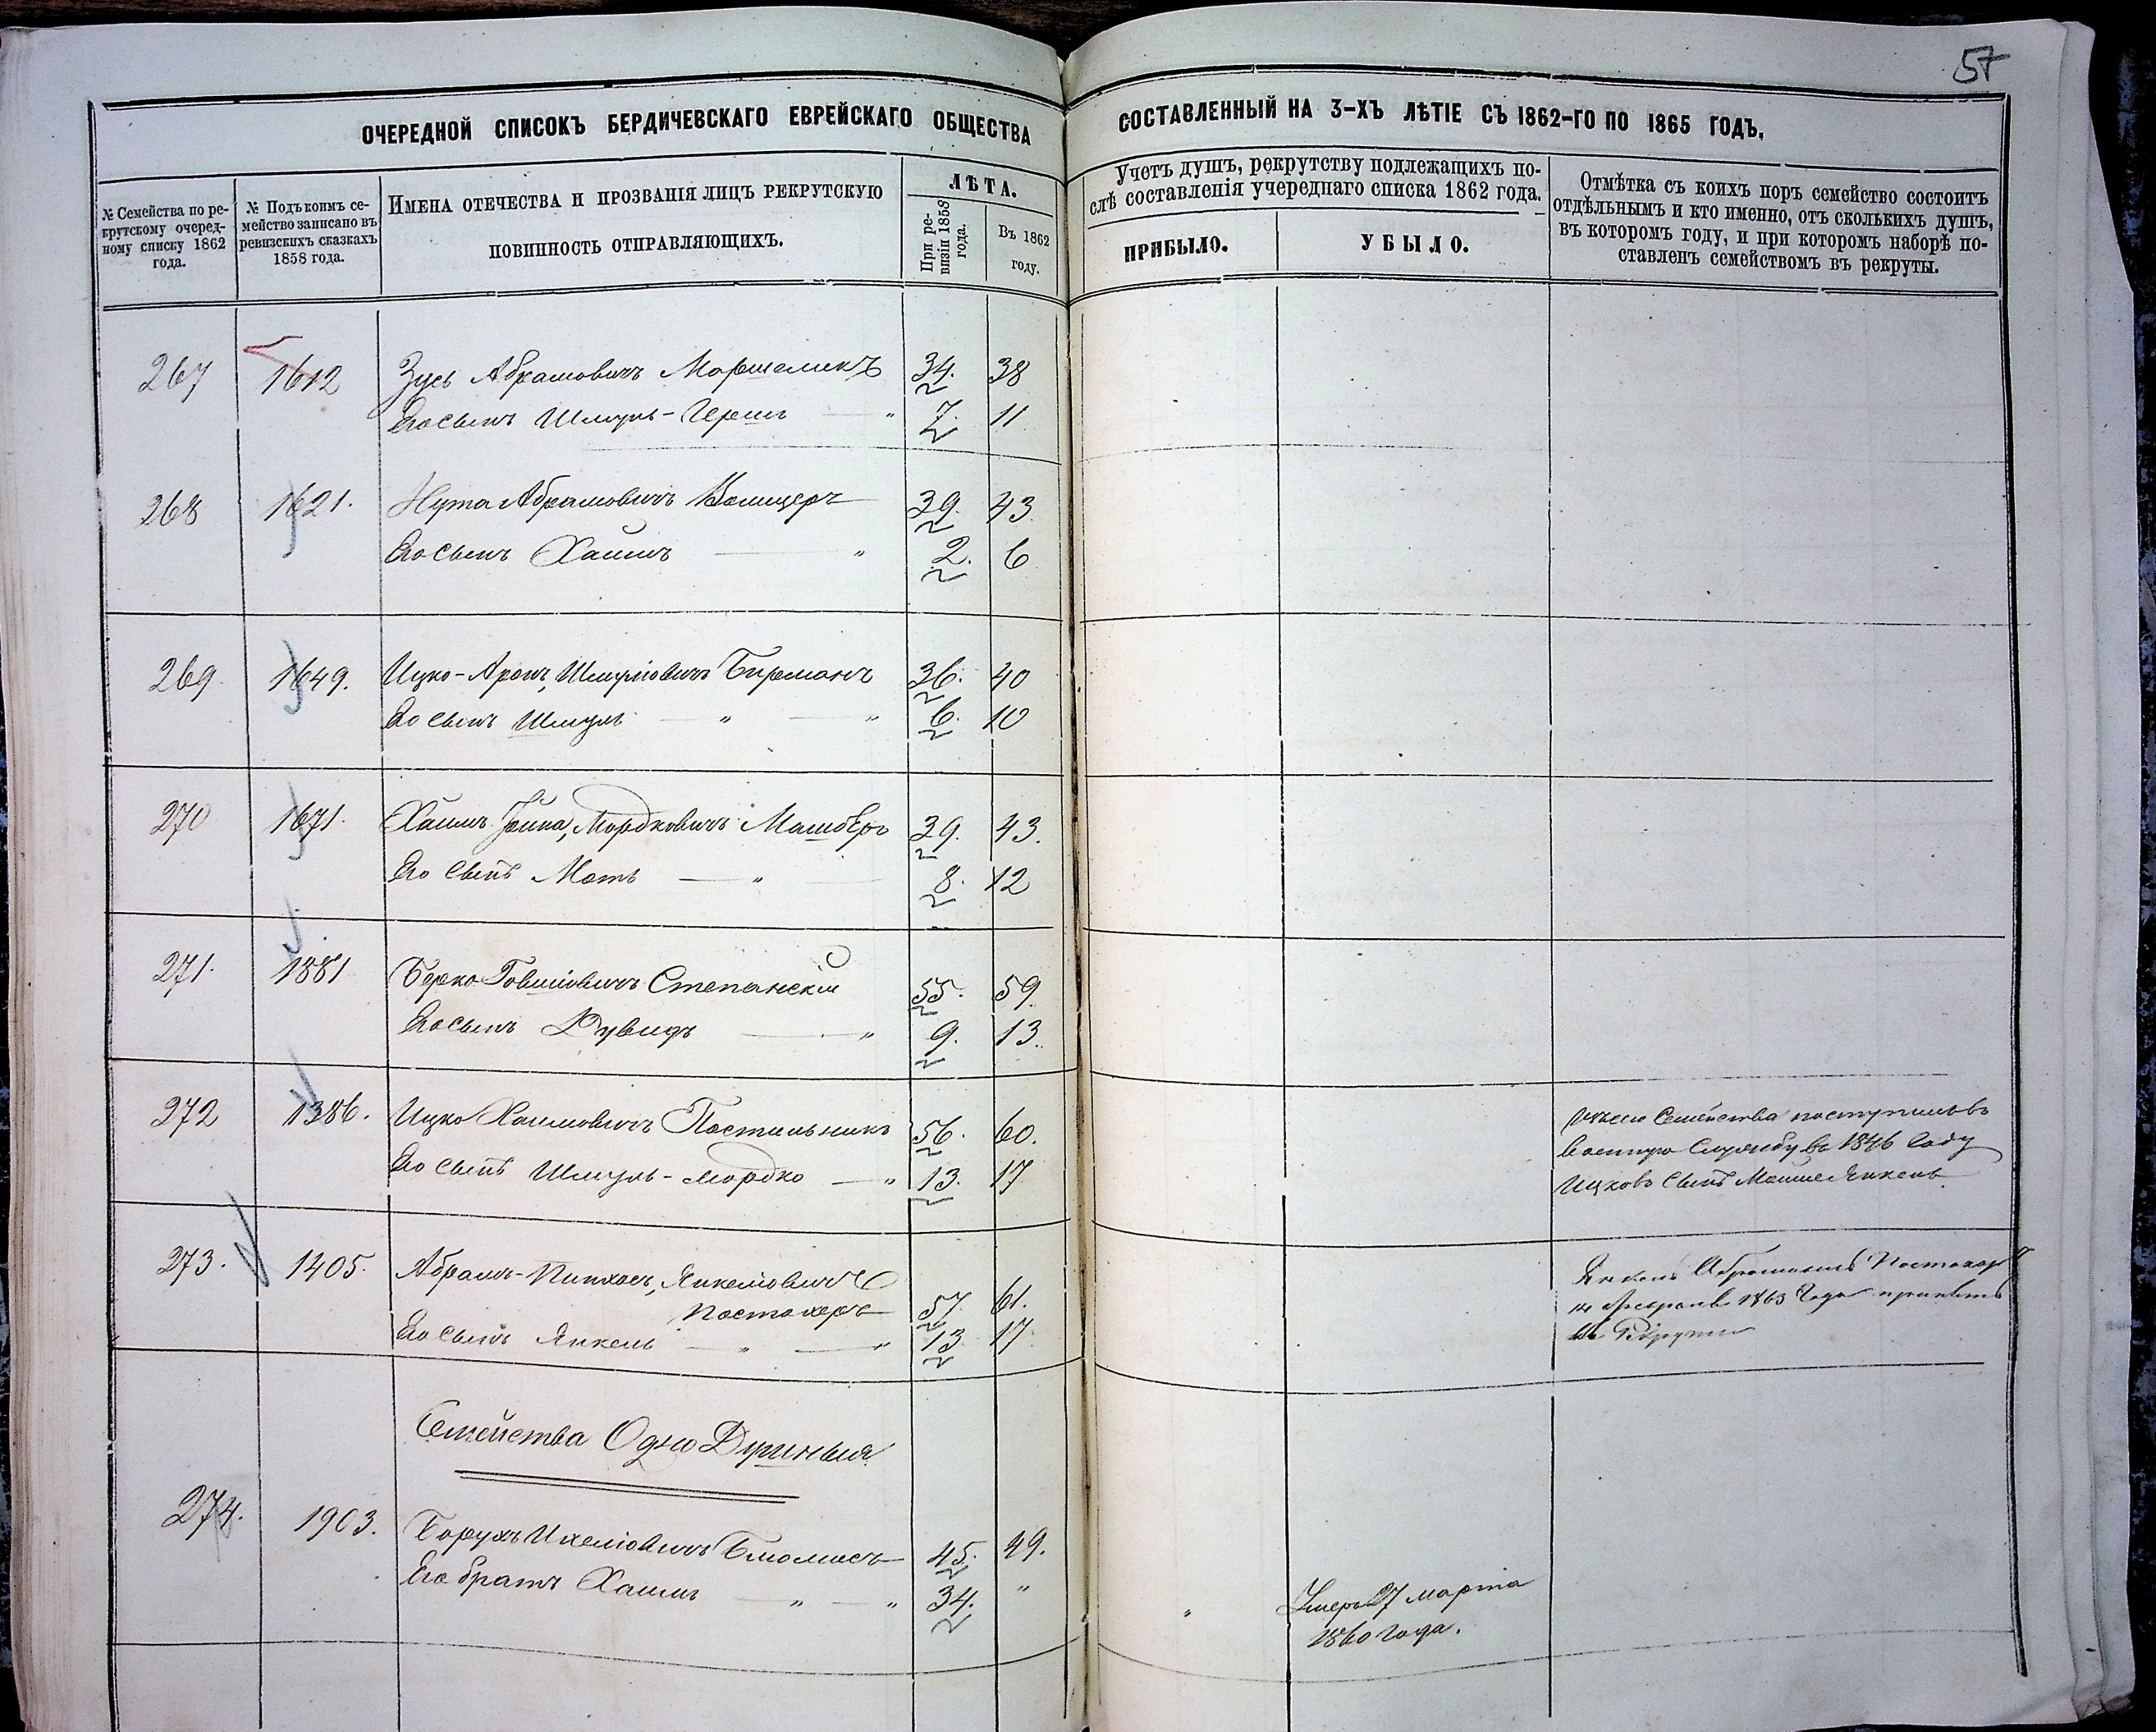 57
ОЧЕРЕДНОЙ СПИСОКЪ БЕРДИЧЕВСКАГО ЕВРЕЙСКАГО ОБЩЕСТВА СОСТАВЛЕННЫЙ НА 3-ХЪ ЛѢТІЕ СЪ 1862-ГО ПО 1865 ГОДЪ,
№ Семейства по ре-
крутскому очеред-
ному списку 1862
года.
№ Подъ коимъ се-
мейство записано въ
ревизскихъ сказкахъ
1858 года.
ИМЕНА ОТЕЧЕСТВА И ПРОЗВАНІЯ ЛИЦЪ РЕКРУТСКУЮ
ПОВИННОСТЬ ОТПРАВЛЯЮЩИХЪ.
ЛѢТА.
При ре-
визіи 1858
года.
Въ 1862
году.
Учетъ душъ, рекрутству подлежащихъ по-
слѣ составленія учереднаго списка 1862 года.
ПРИБЫЛО.
УБЫЛО.
Отмѣтка съ коихъ поръ семейство состоитъ
отдѣльнымъ и кто именно, отъ сколькихъ душъ,
въ которомъ году, и при которомъ наборѣ по-
ставленъ семействомъ въ рекруты.
267 1612 Зусь Абрамовичъ Маршаликъ 34. 38
Его сынъ Шмуль-Гершъ — " 7. 11
268 1621. Нута Абрамовичъ 39. 43.
Его сынъ Хаимъ — " 2. 6
269 1649. Ицко-Аронъ, Шмулiовичъ Бирманъ 36. 40
Его сынъ Шмуль — " — " 6. 10
270 1671. Хаимъ Мордковичъ 39. 43.
Его сынъ Моть — " — 8. 12
271. 1881 Берко Говшiовичъ Степанскiй 55. 59.
Его сынъ Дувидъ — " 9. 13.
272 1386. Ицко Хаимовичъ Постильникъ 56. 60.
Его сынъ Шмуль-Мордко — " 13. 17
Семейства поступилъ въ
военную службу въ 1846 году
Ицковъ сынъ Мошке Янкель
273. 1405. Абрамъ-Пинхасъ, Янкелiовичъ
Постахеръ 57. 61.
Его сынъ Янкель — " — " 13. 17.
Янкель
14 Февраля 1863 года принятъ
въ Рекруты
Семейства Однодушныя
274. 1903. Борухъ 45. 49.
Его братъ Хаимъ — " — " 34. "
" Умеръ 27 марта
1860 года.